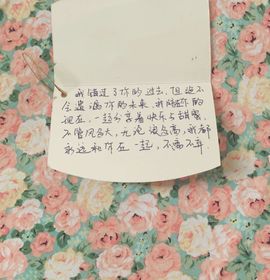 我错过了你的过去，但绝不
会遗漏你的未来，我陪在你的
现在，一起分享着快乐与甜蜜，
不管风多大，无论浪多高，我都
永远和你在一起，不离不弃